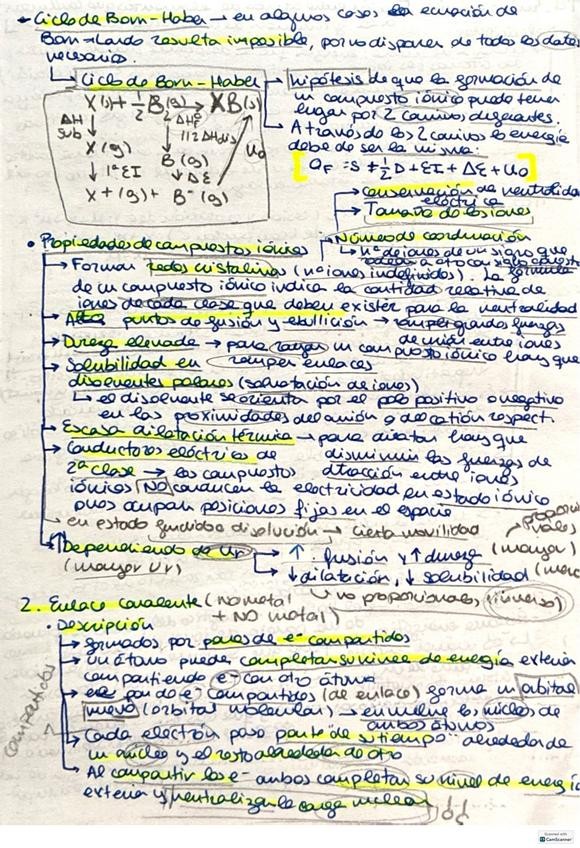 Ciclo de Born-Haber → en algunos casos la ecuación de
Born-Landé resulta imposible, por no disponer de todos los datos
necesarios.
Ciclo de Born-Haber
X(s) + 1/2 B₂(g) → XB(s)
ΔH sub
ΔHf
1/2 ΔHdis
X(g)
B(g)
U₀
1ª EI
↓ ΔE
X+(g) + B-(g)
Hipótesis de que la formación de
un compuesto iónico puede tener
lugar por 2 caminos diferentes.
A través de los 2 caminos la energía
debe de ser la misma:
[QF = S + 1/2 D + EI + ΔE + U₀]
→ conservación de neutralidad
eléctrica
→ Tamaño de los iones
Propiedades de compuestos iónicos
Número de coordinación
↳ nº de iones de un signo que
→ Forman redes cristalinas (nº iones indefinidos). La fórmula
de un compuesto iónico indica la cantidad relativa de
iones de cada clase que deben existir para la neutralidad
→ Altos puntos de fusión y ebullición → romper grandes fuerzas
de unión entre iones
→ Dureza elevada → para rayar un compuesto iónico hay que
romper enlaces
→ Solubilidad en
disolventes polares (solvatación de iones)
↳ el disolvente se orienta por el polo positivo o negativo
en las proximidades del anión o del catión respect.
→ Escasa dilatación térmica → para dilatar hay que
disminuir las fuerzas de
atracción entre iones
→ Conductores eléctricos de
2ª clase → los compuestos
iónicos NO conducen la electricidad en estado iónico
pues ocupan posiciones fijas en el espacio
en estado fundido o disolución → cierta movilidad
proporcionales
→ Dependiendo de Ur
(mayor Ur)
→ ↑ fusión y ↑ dureza (mayor)
→ ↓ dilatación, ↓ solubilidad
↳ no proporcionales (inverso)
2. Enlace covalente (no metal
+ NO metal)
• Descripción
→ formados por pares de e- compartidos
→ un átomo puede completar su nivel de energía exterior
compartiendo e- con otro átomo
→ ese par de e- compartidos (de enlace) forma un orbital
nuevo (orbital molecular) → envuelve los núcleos de
ambos átomos
compartidos
→ Cada electrón pasa parte de su tiempo alrededor de
un núcleo y el resto alrededor de otro
→ Al compartir los e- ambos completan su nivel de energía
exterior y neutralizan la carga nuclear
Scanned with
CamScanner